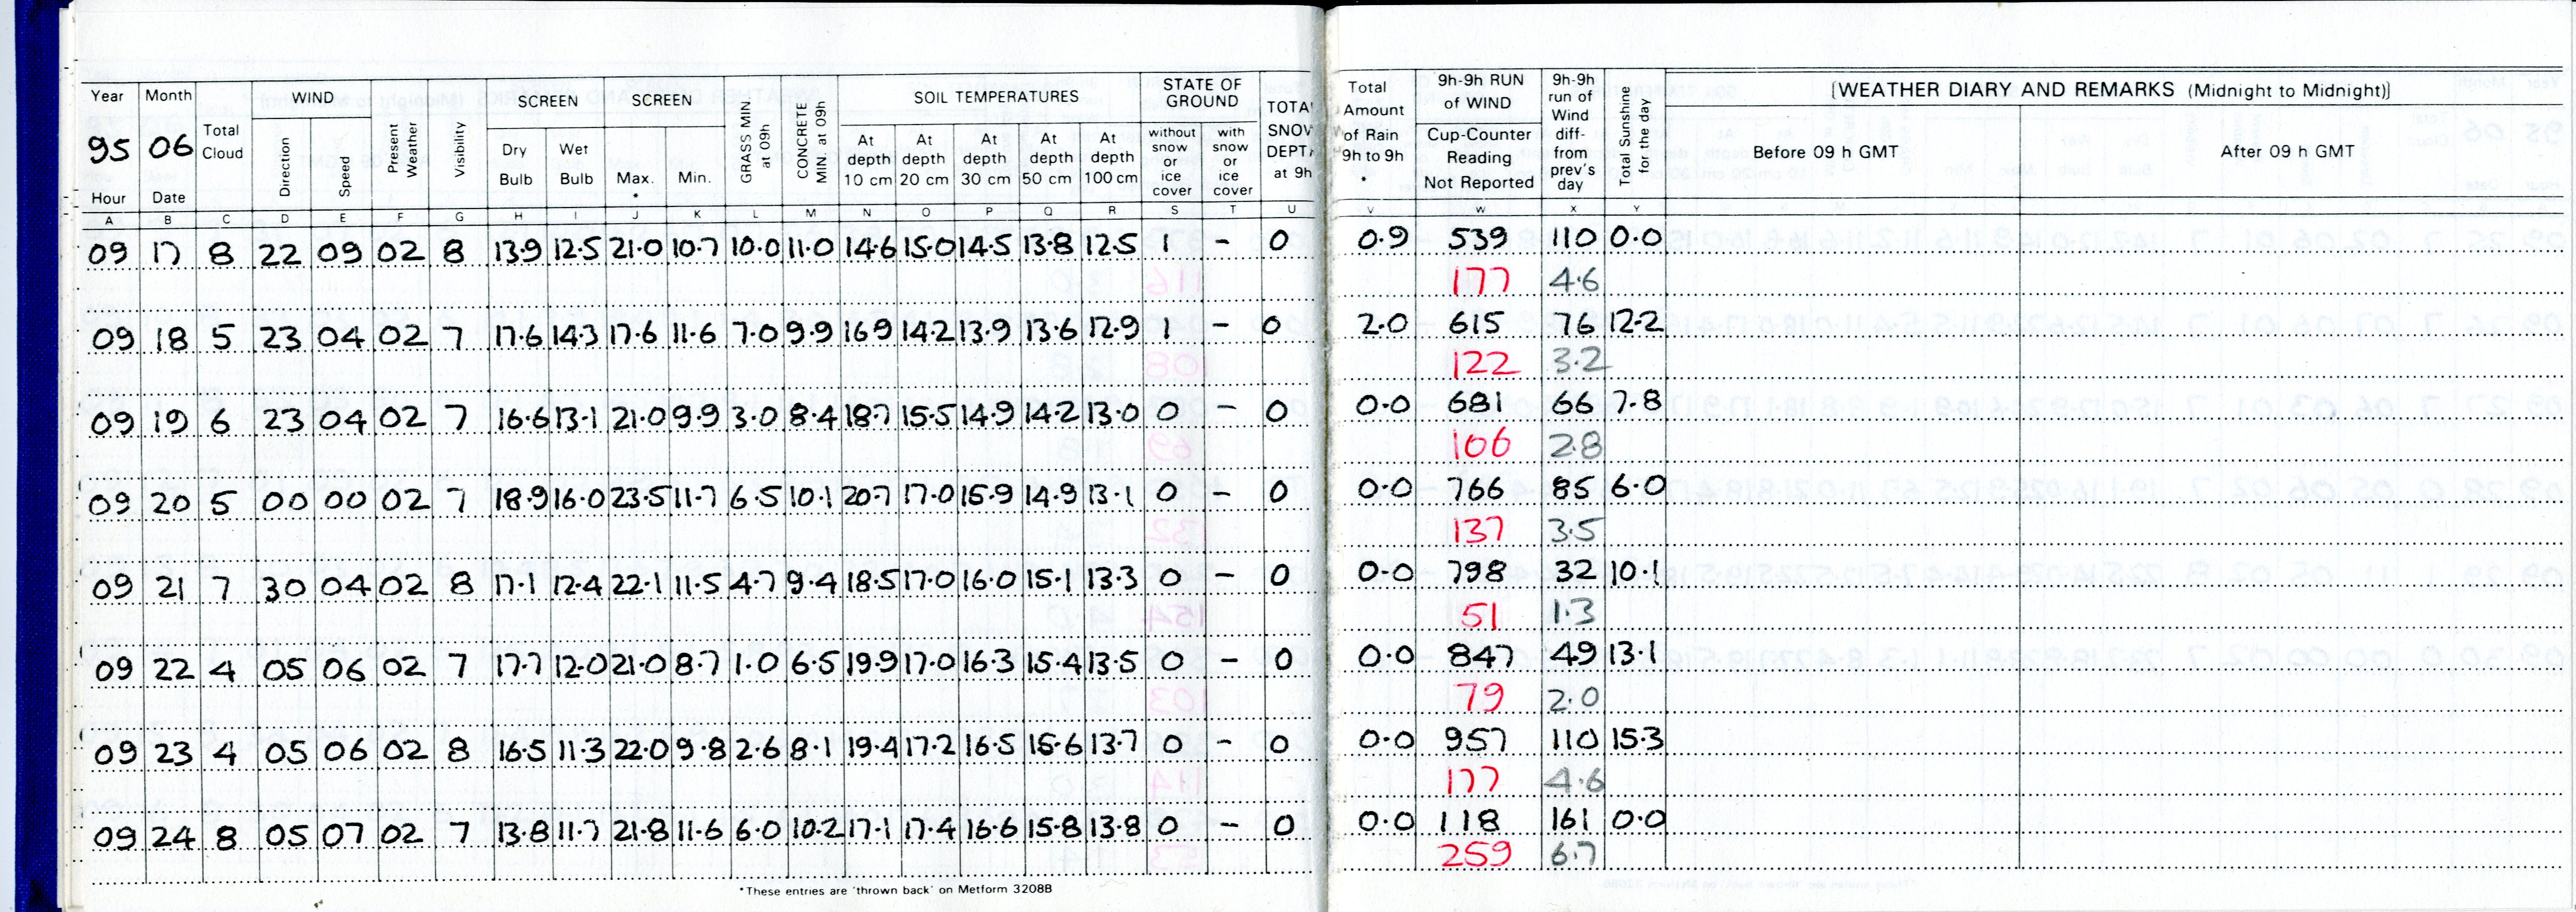 Year Month Total Cloud WIND Present Weather Visibility SCREEN SCREEN GRASS MIN. at 09h CONCRETE MIN. at 09h SOIL TEMPERATURES STATE OF GROUND TOTAL SNOW DEPTH at 9h Total Amount of Rain 9h to 9h * 9h-9h RUN of WIND 9h-9h run of Wind diff- from prev's day Total Sunshine for the day [WEATHER DIARY AND REMARKS (Midnight to Midnight)]
95 06 Direction Speed Dry Bulb Wet Bulb Max. * Min. At depth 10 cm At depth 20 cm At depth 30 cm At depth 50 cm At depth 100 cm without snow or ice cover with snow or ice cover Cup-Counter Reading Not Reported Before 09 h GMT After 09 h GMT
Hour Date
A B C D E F G H I J K L M N O P Q R S T U V W X Y
09 17 8 22 09 02 8 13.9 12.5 21.0 10.7 10.0 11.0 14.6 15.0 14.5 13.8 12.5 1 - 0 0.9 539 110 0.0
177 4.6
09 18 5 23 04 02 7 17.6 14.3 17.6 11.6 7.0 9.9 16.9 14.2 13.9 13.6 12.9 1 - 0 2.0 615 76 12.2
122 3.2
09 19 6 23 04 02 7 16.6 13.1 21.0 9.9 3.0 8.4 18.7 15.5 14.9 14.2 13.0 0 - 0 0.0 681 66 7.8
106 2.8
09 20 5 00 00 02 7 18.9 16.0 23.5 11.7 6.5 10.1 20.7 17.0 15.9 14.9 13.1 0 - 0 0.0 766 85 6.0
137 3.5
09 21 7 30 04 02 8 17.1 12.4 22.1 11.5 4.7 9.4 18.5 17.0 16.0 15.1 13.3 0 - 0 0.0 798 32 10.1
51 1.3
09 22 4 05 06 02 7 17.7 12.0 21.0 8.7 1.0 6.5 19.9 17.0 16.3 15.4 13.5 0 - 0 0.0 847 49 13.1
79 2.0
09 23 4 05 06 02 8 16.5 11.3 22.0 9.8 2.6 8.1 19.4 17.2 16.5 15.6 13.7 0 - 0 0.0 957 110 15.3
177 4.6
09 24 8 05 07 02 7 13.8 11.7 21.8 11.6 6.0 10.2 17.1 17.4 16.6 15.8 13.8 0 - 0 0.0 118 161 0.0
259 6.7
*These entries are 'thrown back' on Metform 3208B